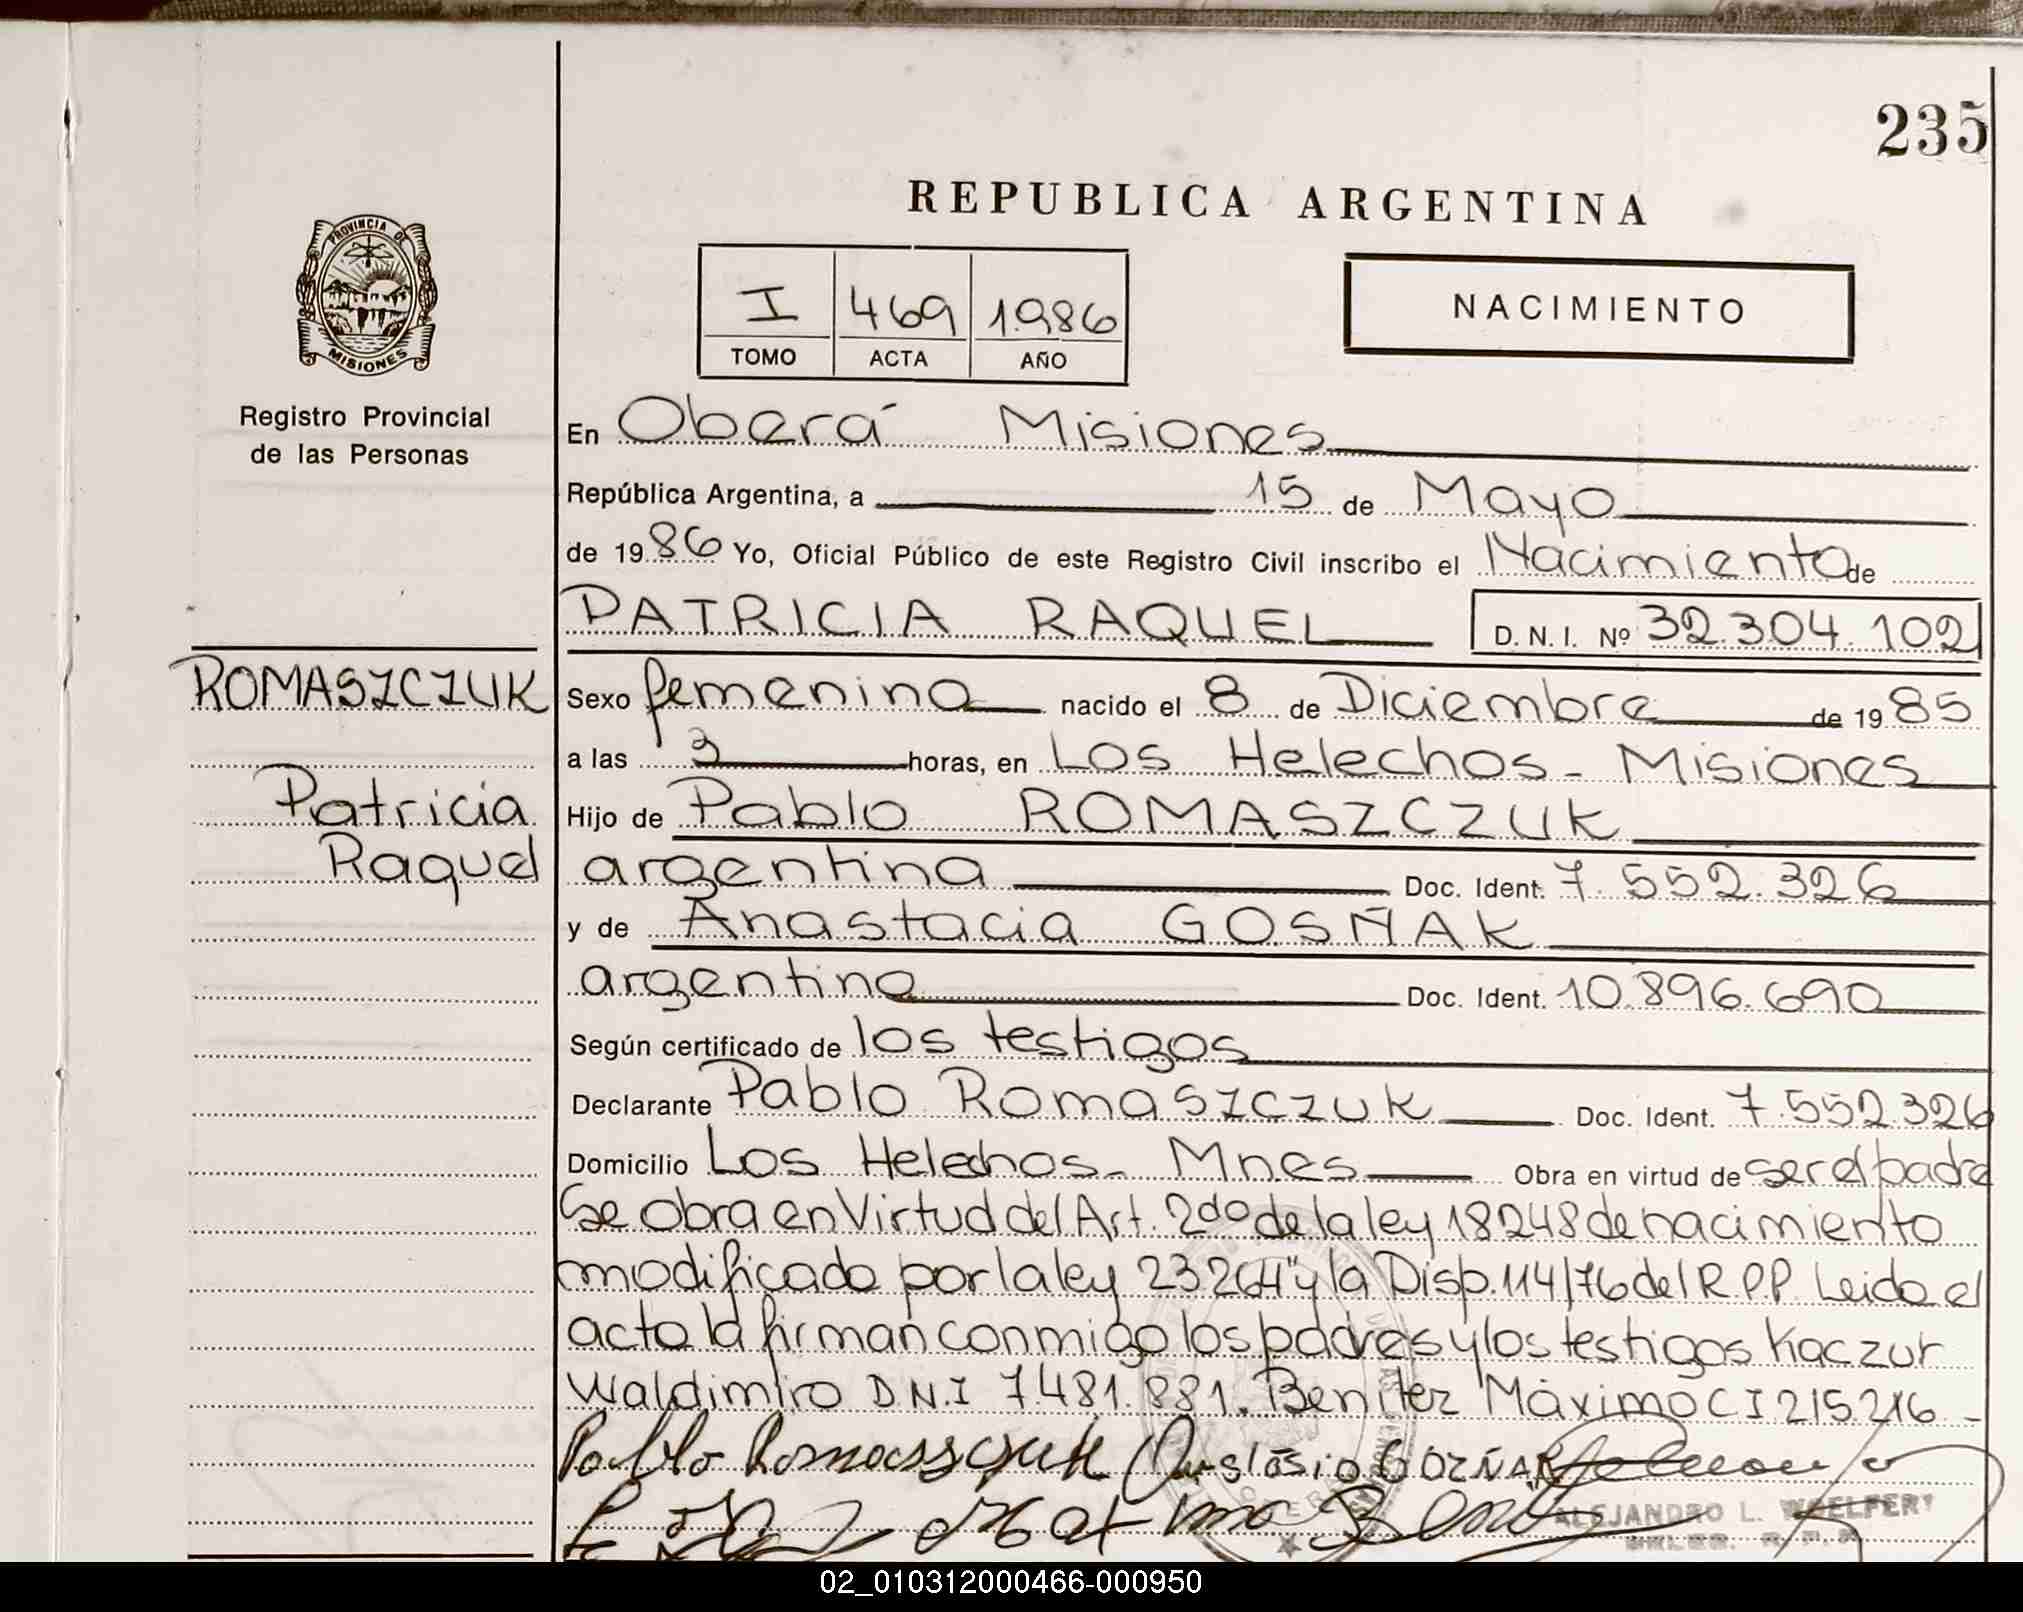 235
REPUBLICA ARGENTINA
PROVINCIA DE
MISIONES
I 469 1986
TOMO ACTA AÑO
NACIMIENTO
Registro Provincial
de las Personas
En Oberá Misiones
República Argentina, a 15 de Mayo
de 1986 Yo, Oficial Público de este Registro Civil inscribo el Nacimiento de
PATRICIA RAQUEL D. N. I. Nº 32.304.102
ROMASZCZUK
Patricia
Raquel
Sexo femenino nacido el 8 de Diciembre de 1985
a las 3 horas, en Los Helechos - Misiones
Hijo de Pablo ROMASZCZUK
argentino Doc. Ident. 7.552.326
y de Anastacia GOSÑAK
argentina Doc. Ident. 10.896.690
Según certificado de los testigos
Declarante Pablo Romaszczuk Doc. Ident. 7.552.326
Domicilio Los Helechos - Mnes Obra en virtud de ser el padre
Se obra en Virtud del Art. 2do de la ley 18248 de nacimiento
modificado por la ley 23264" y la Disp. 114/76 del R.P.P. Leida el
acta la firman conmigo los padres y los testigos Kaczur
Waldimiro D.N.I 7.481.881. Benitez Máximo C I 215.216 -
Pablo Romaszczuk
ALEJANDRO L. WOELFERT
02_010312000466-000950